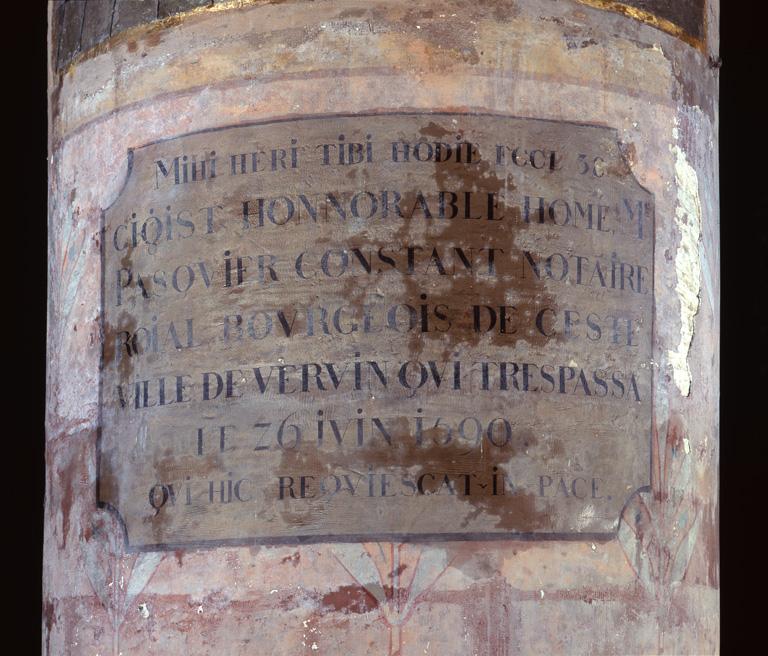 Mihi HERI TIBI HODIE ECCE 30
CIQIST HONNORABLE HOME Mᴱ
PASQVIER CONSTANT NOTAIRE
ROIAL BOVRGEOIS DE CESTE
VILLE DE VERVIN QVI TRESPASSA
LE 26 IVIN 1690
QVI HIC REQVIESCAT IN PACE.